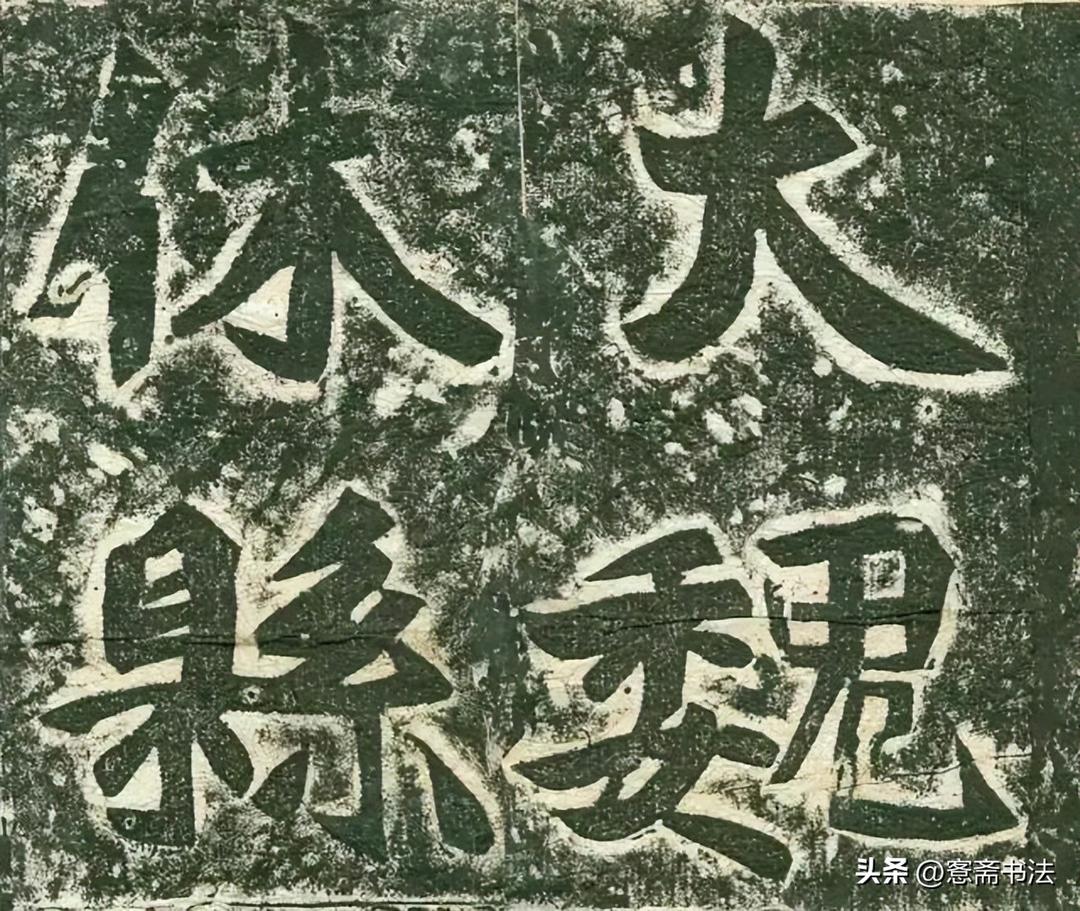 大魏
休縣
头条 @愙斋书法